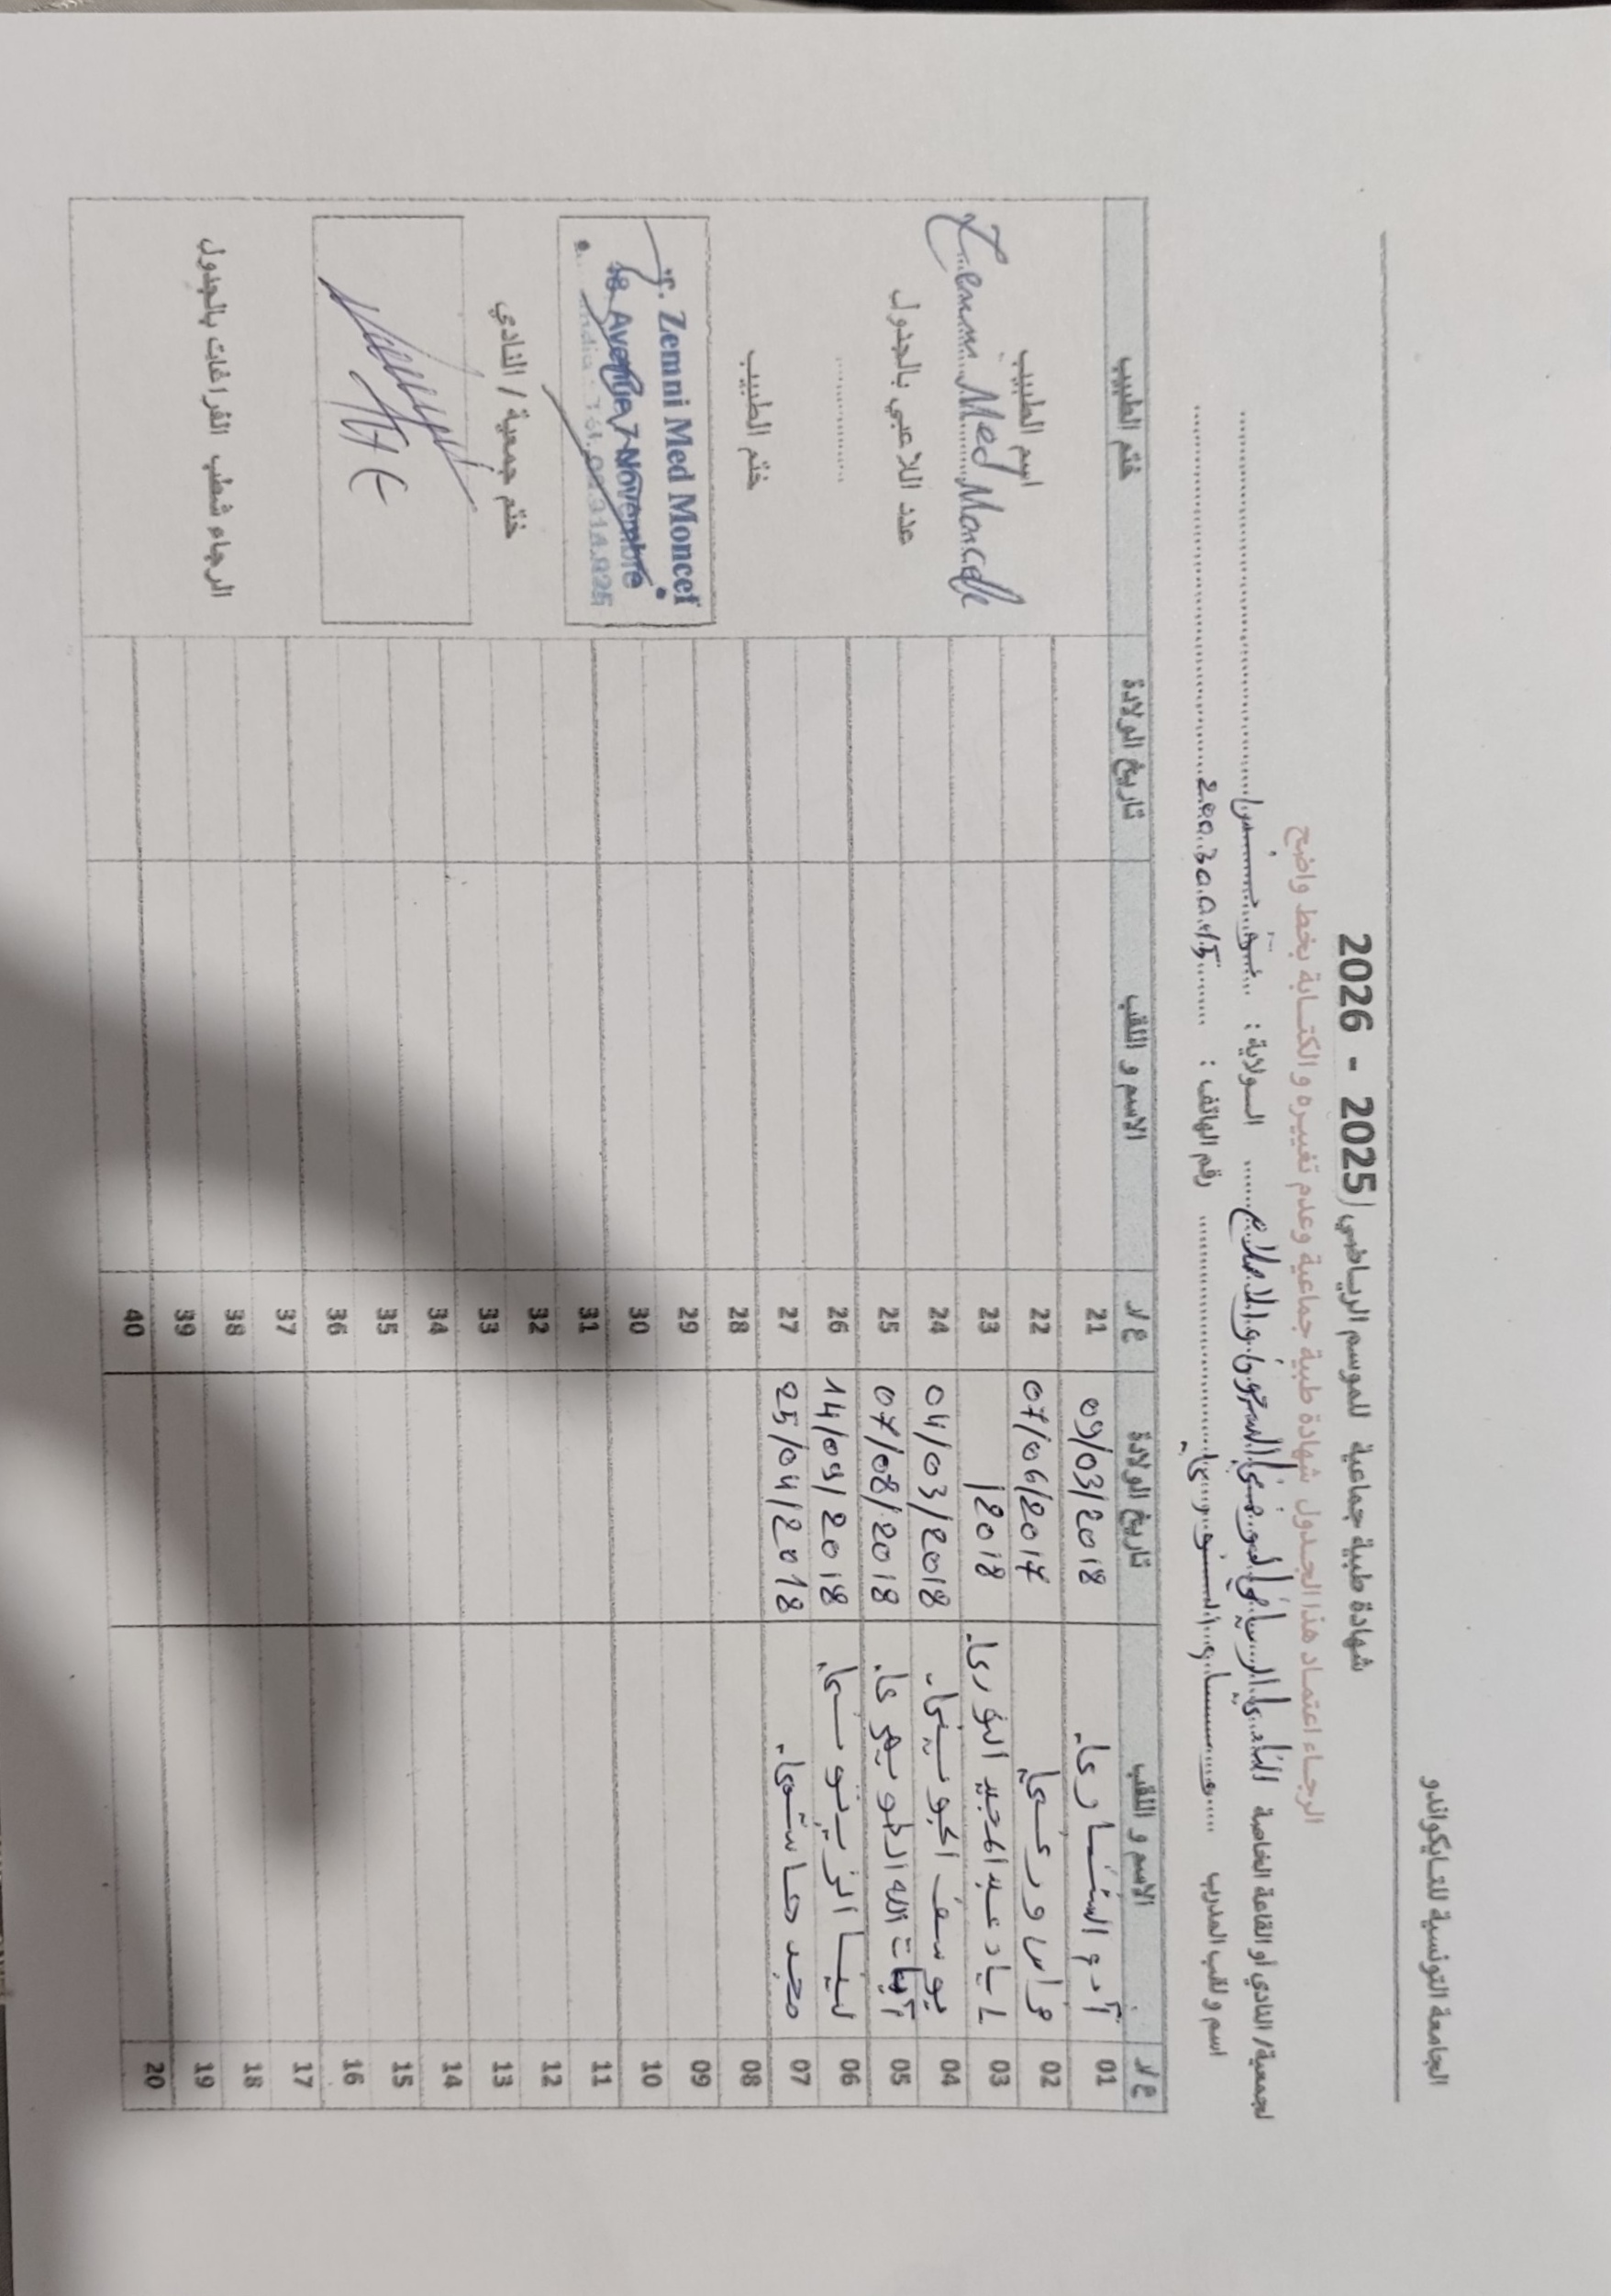 الجامعة التونسية للتايكواندو
شهادة طبية جماعية للموسم الرياضي (2025 - 2026
الرجاء اعتماد هذا الجدول شهادة طبية جماعية وعدم تغييره و الكتابة بخط واضح
لجمعية/ النادي أو القاعة الخاصة النادي الرياضي لموظفي السجون والاصلاح الولاية :
اسم و لقب المدرب رقم الهاتف :
ع/ر الاسم و اللقب تاريخ الولادة ع/ر الاسم و اللقب تاريخ الولادة ختم الطبيب
01 آدم 09/03/2018 21
02 فراس ورغي 07/06/2017 22
03 اياد عبد المجيد /2018 23
04 يوسف 04/03/2018 24
05 آيات الله 07/08/2018 25
06 لينا الزيتوني 14/09/2018 26
07 مجد 25/04/2018 27
08 28
09 29
10 30
11 31
12 32
13 33
14 34
15 35
16 36
17 37
18 38
19 39
20 40
اسم الطبيب
Zemni Med Moncef
عدد اللاعبي بالجدول
ختم الطبيب
Zemni Med Moncef
48 Avenue 7 Novembre
ختم جمعية / النادي
الرجاء شطب الفراغات بالجدول